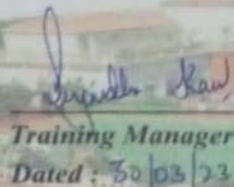 Training Manager
Dated : 30/03/23